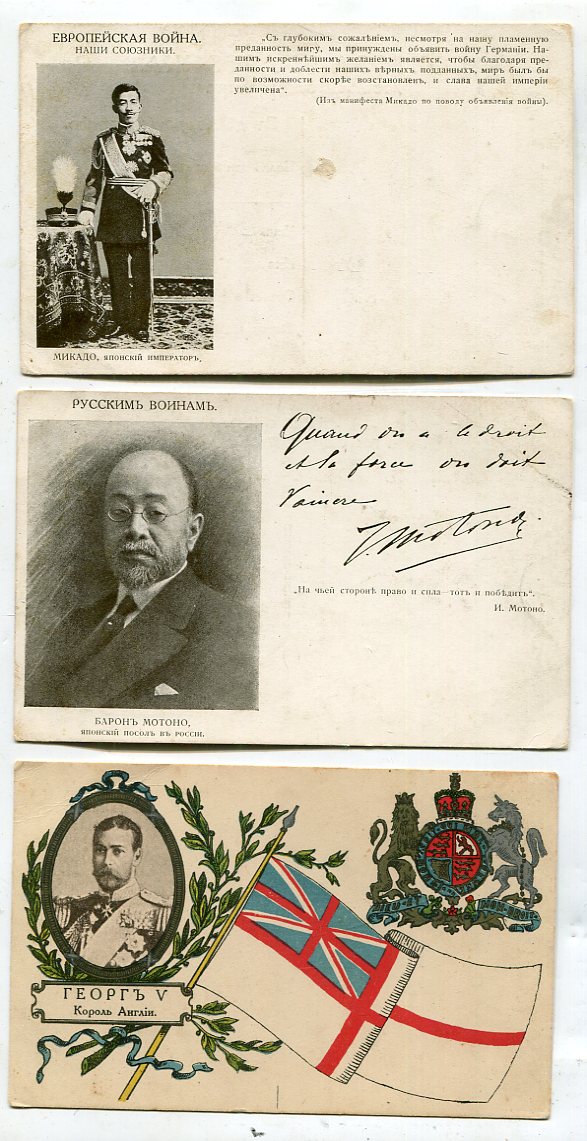 ЕВРОПЕЙСКАЯ ВОЙНА.
НАШИ СОЮЗНИКИ.
„Съ глубокимъ сожалѣніемъ, несмотря на нашу пламенную
преданность миру, мы принуждены объявить войну Германіи. На-
шимъ искреннѣйшимъ желаніемъ является, чтобы благодаря пре-
данности и доблести нашихъ вѣрныхъ подданныхъ, миръ былъ бы
по возможности скорѣе возстановленъ, и слава нашей имперіи
увеличена“.
(Изъ манифеста Микадо по поводу объявленія войны).
МИКАДО, ЯПОНСКІЙ ИМПЕРАТОРЪ.
РУССКИМЪ ВОИНАМЪ.
Quand on a le droit
et la force on doit
vaincre
I. Motono.
„На чьей сторонѣ право и сила—тотъ и побѣдитъ“.
И. Мотоно.
БАРОНЪ МОТОНО,
ЯПОНСКІЙ ПОСОЛЪ ВЪ РОССІИ.
ГЕОРГЪ V
Король Англіи.